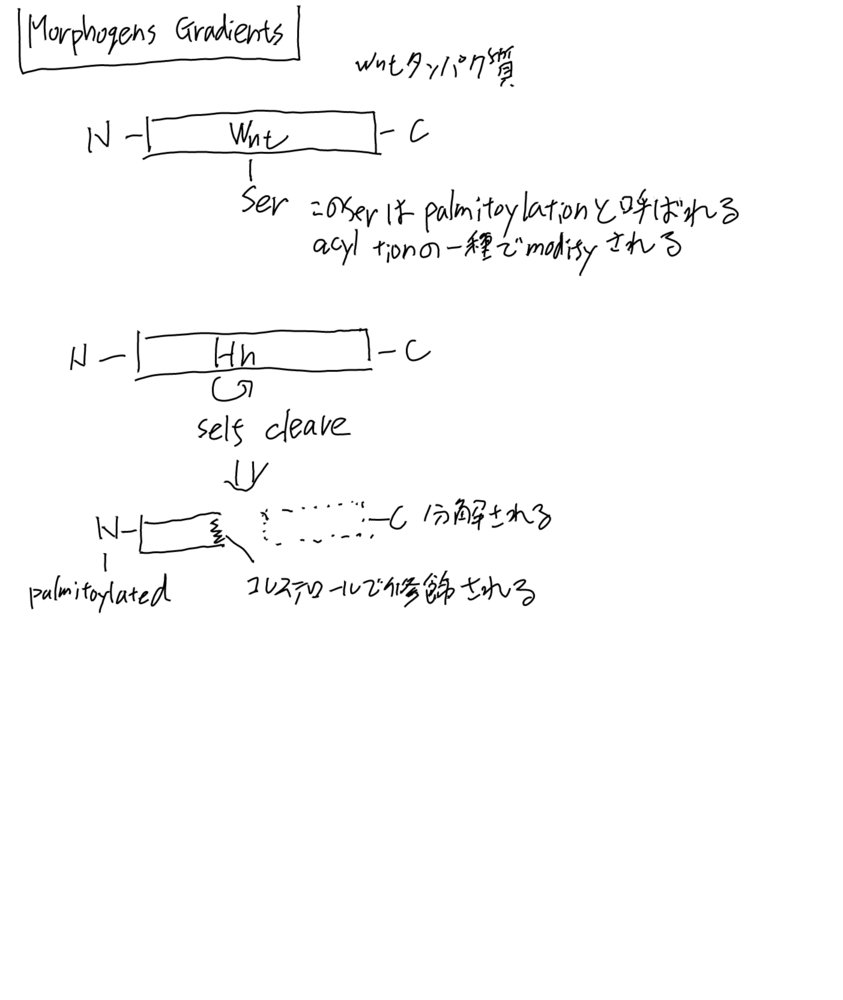 Morphogens Gradients
Wntタンパク質
N - Wnt - C
Ser このSerは palmitoylationと呼ばれる
acyl tionの一種でmodifyされる
N - Hh - C
self cleave
N - - C 分解される
palmitoylated コレステロールで修飾される